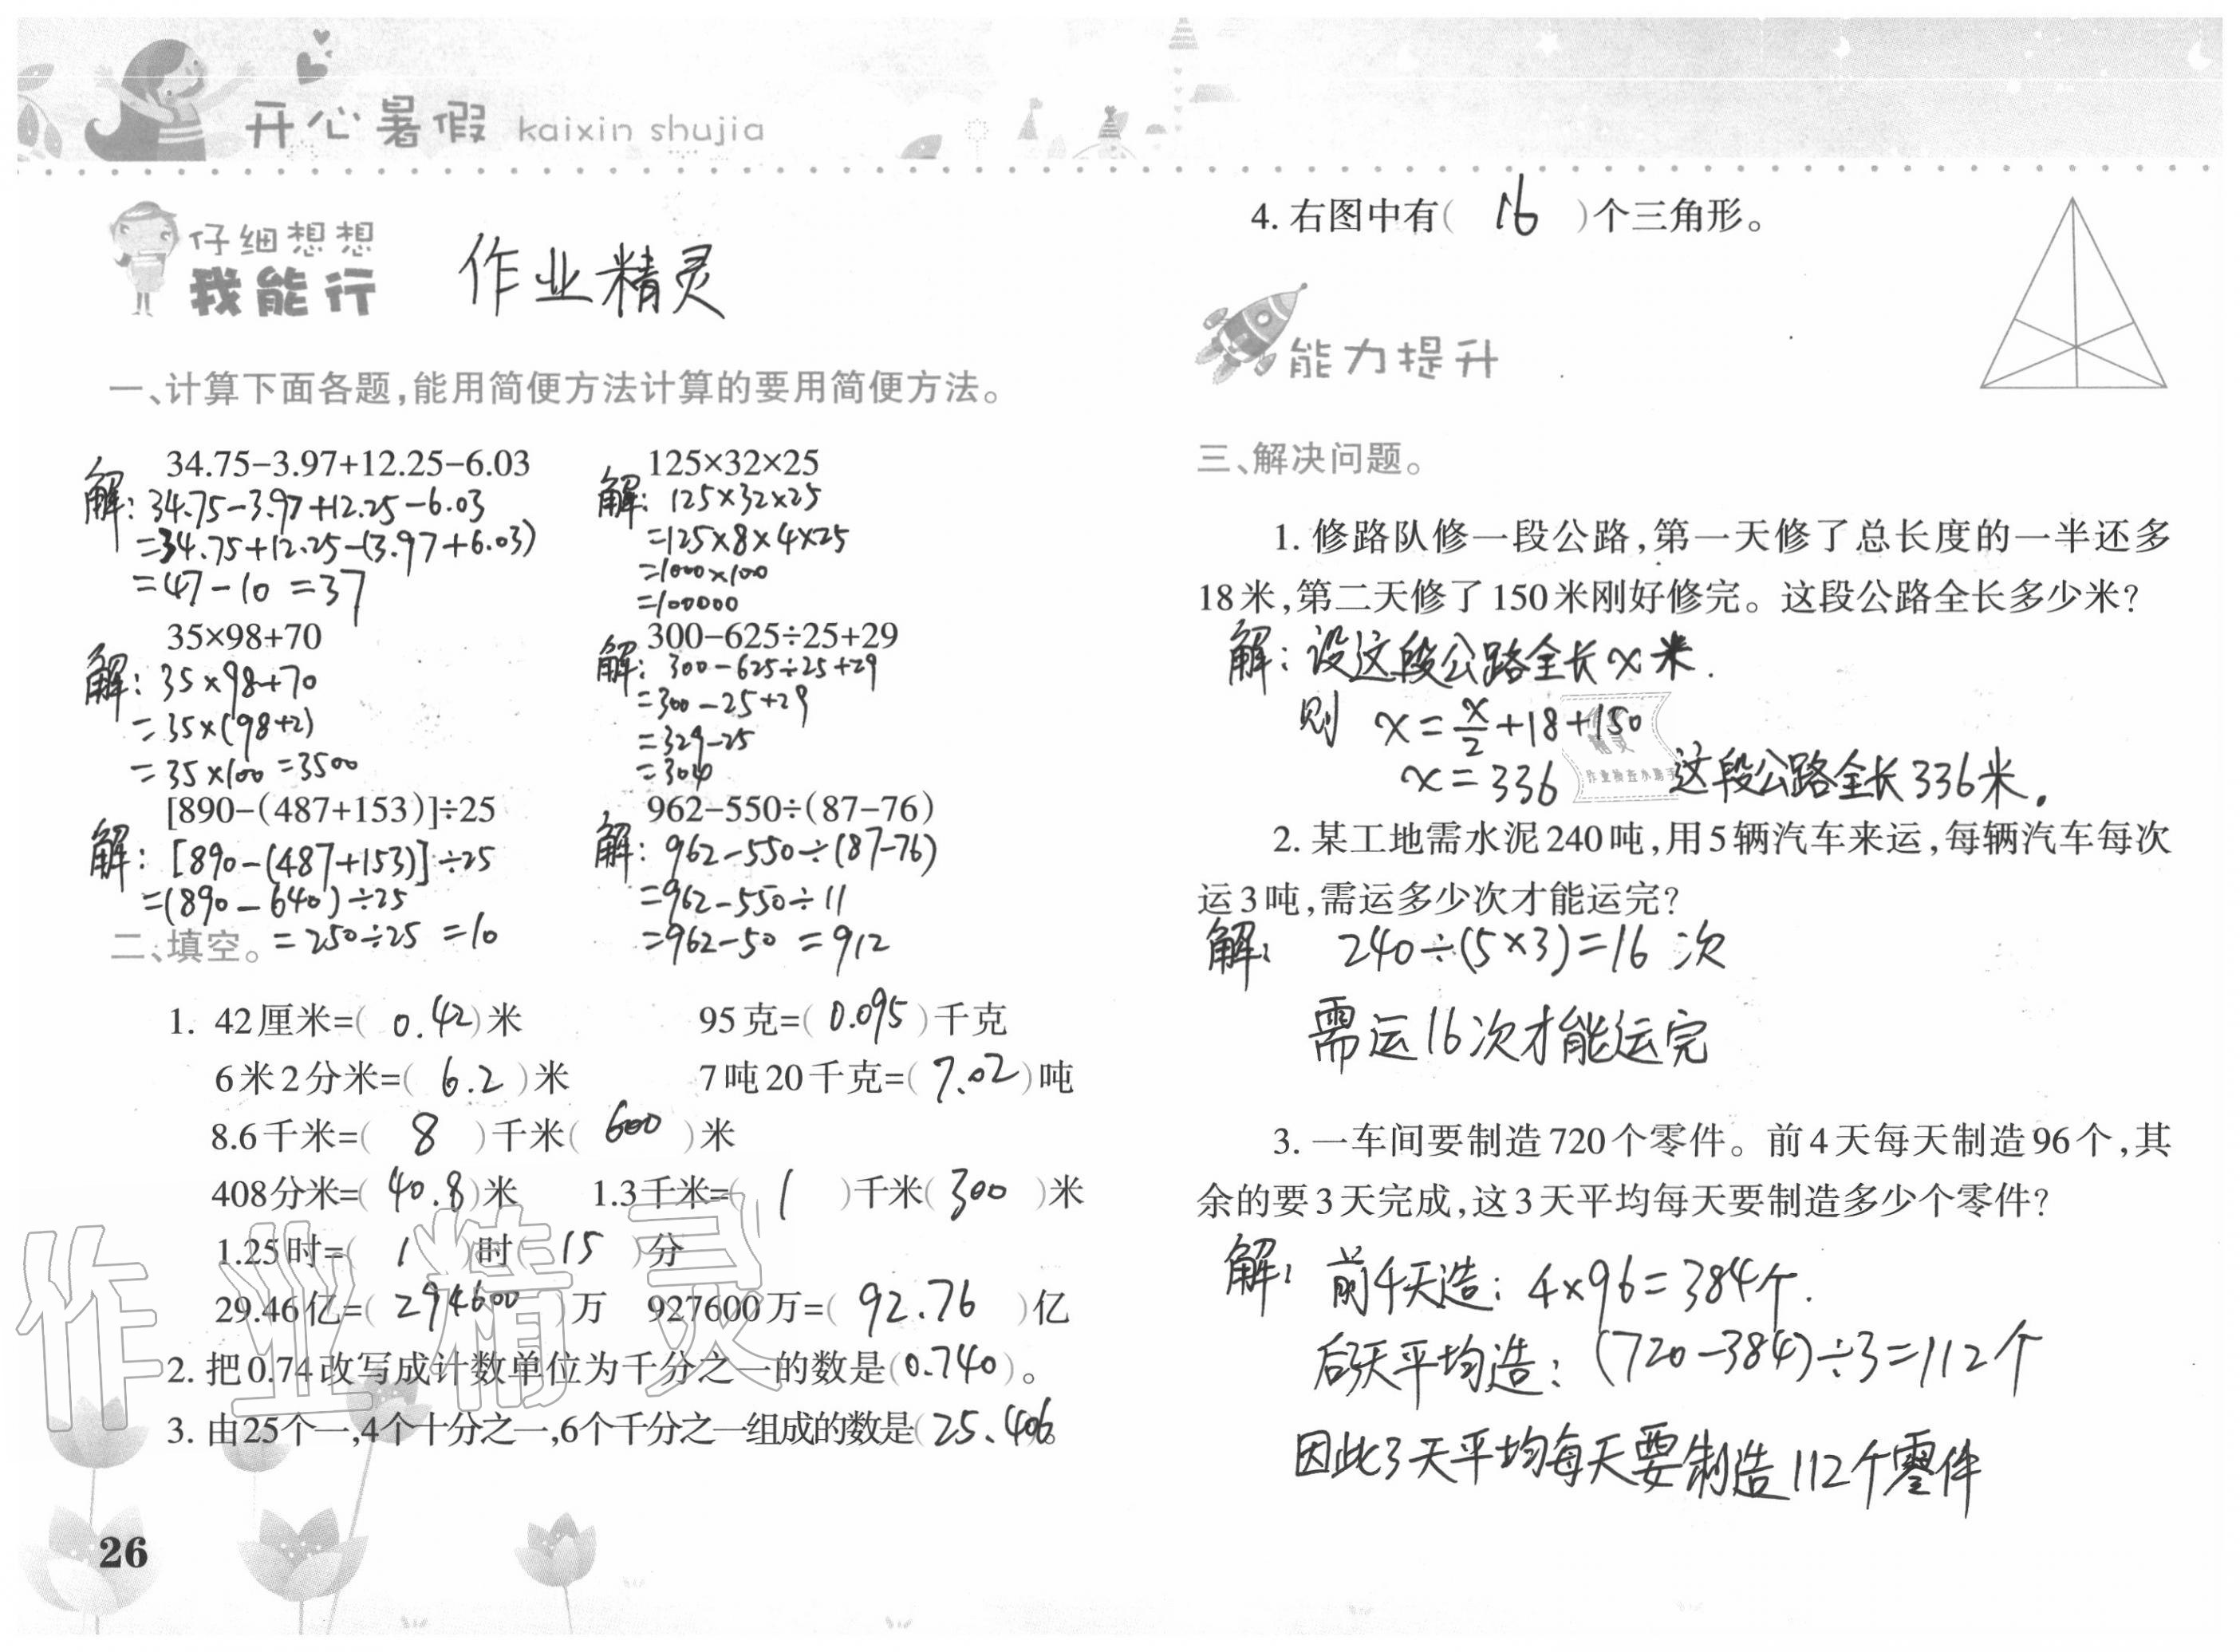 开心暑假 kaixin shujia
仔细想想
我能行
作业精灵
一、计算下面各题,能用简便方法计算的要用简便方法。
34.75-3.97+12.25-6.03
解: 34.75-3.97+12.25-6.03
=34.75+12.25-(3.97+6.03)
=47-10 =37
125×32×25
解: 125×32×25
=125×8×4×25
=1000×100
=100000
35×98+70
解: 35×98+70
=35×(98+2)
=35×100 =3500
300-625÷25+29
解: 300-625÷25+29
=300-25+29
=329-25
=304
[890-(487+153)]÷25
解: [890-(487+153)]÷25
=(890-640)÷25
=250÷25 =10
962-550÷(87-76)
解: 962-550÷(87-76)
=962-550÷11
=962-50 =912
二、填空。
1. 42厘米=( 0.42 )米 95克=( 0.095 )千克
6米2分米=( 6.2 )米 7吨20千克=( 7.02 )吨
8.6千米=( 8 )千米( 600 )米
408分米=( 40.8 )米 1.3千米=( 1 )千米( 300 )米
1.25时=( 1 )时( 15 )分
29.46亿=( 294600 )万 927600万=( 92.76 )亿
2. 把0.74改写成计数单位为千分之一的数是(0.740)。
3. 由25个一,4个十分之一,6个千分之一组成的数是(25.406)。
作业精灵
26
4. 右图中有( 16 )个三角形。
能力提升
三、解决问题。
1. 修路队修一段公路,第一天修了总长度的一半还多
18米,第二天修了150米刚好修完。这段公路全长多少米?
解: 设这段公路全长x米.
则 x=x/2+18+150
x=336 这段公路全长336米.
作业
精灵
作业检查小助手
2. 某工地需水泥240吨,用5辆汽车来运,每辆汽车每次
运3吨,需运多少次才能运完?
解: 240÷(5×3)=16 次
需运16次才能运完
3. 一车间要制造720个零件。前4天每天制造96个,其
余的要3天完成,这3天平均每天要制造多少个零件?
解: 前4天造: 4×96=384个.
后3天平均造: (720-384)÷3=112个
因此3天平均每天要制造112个零件